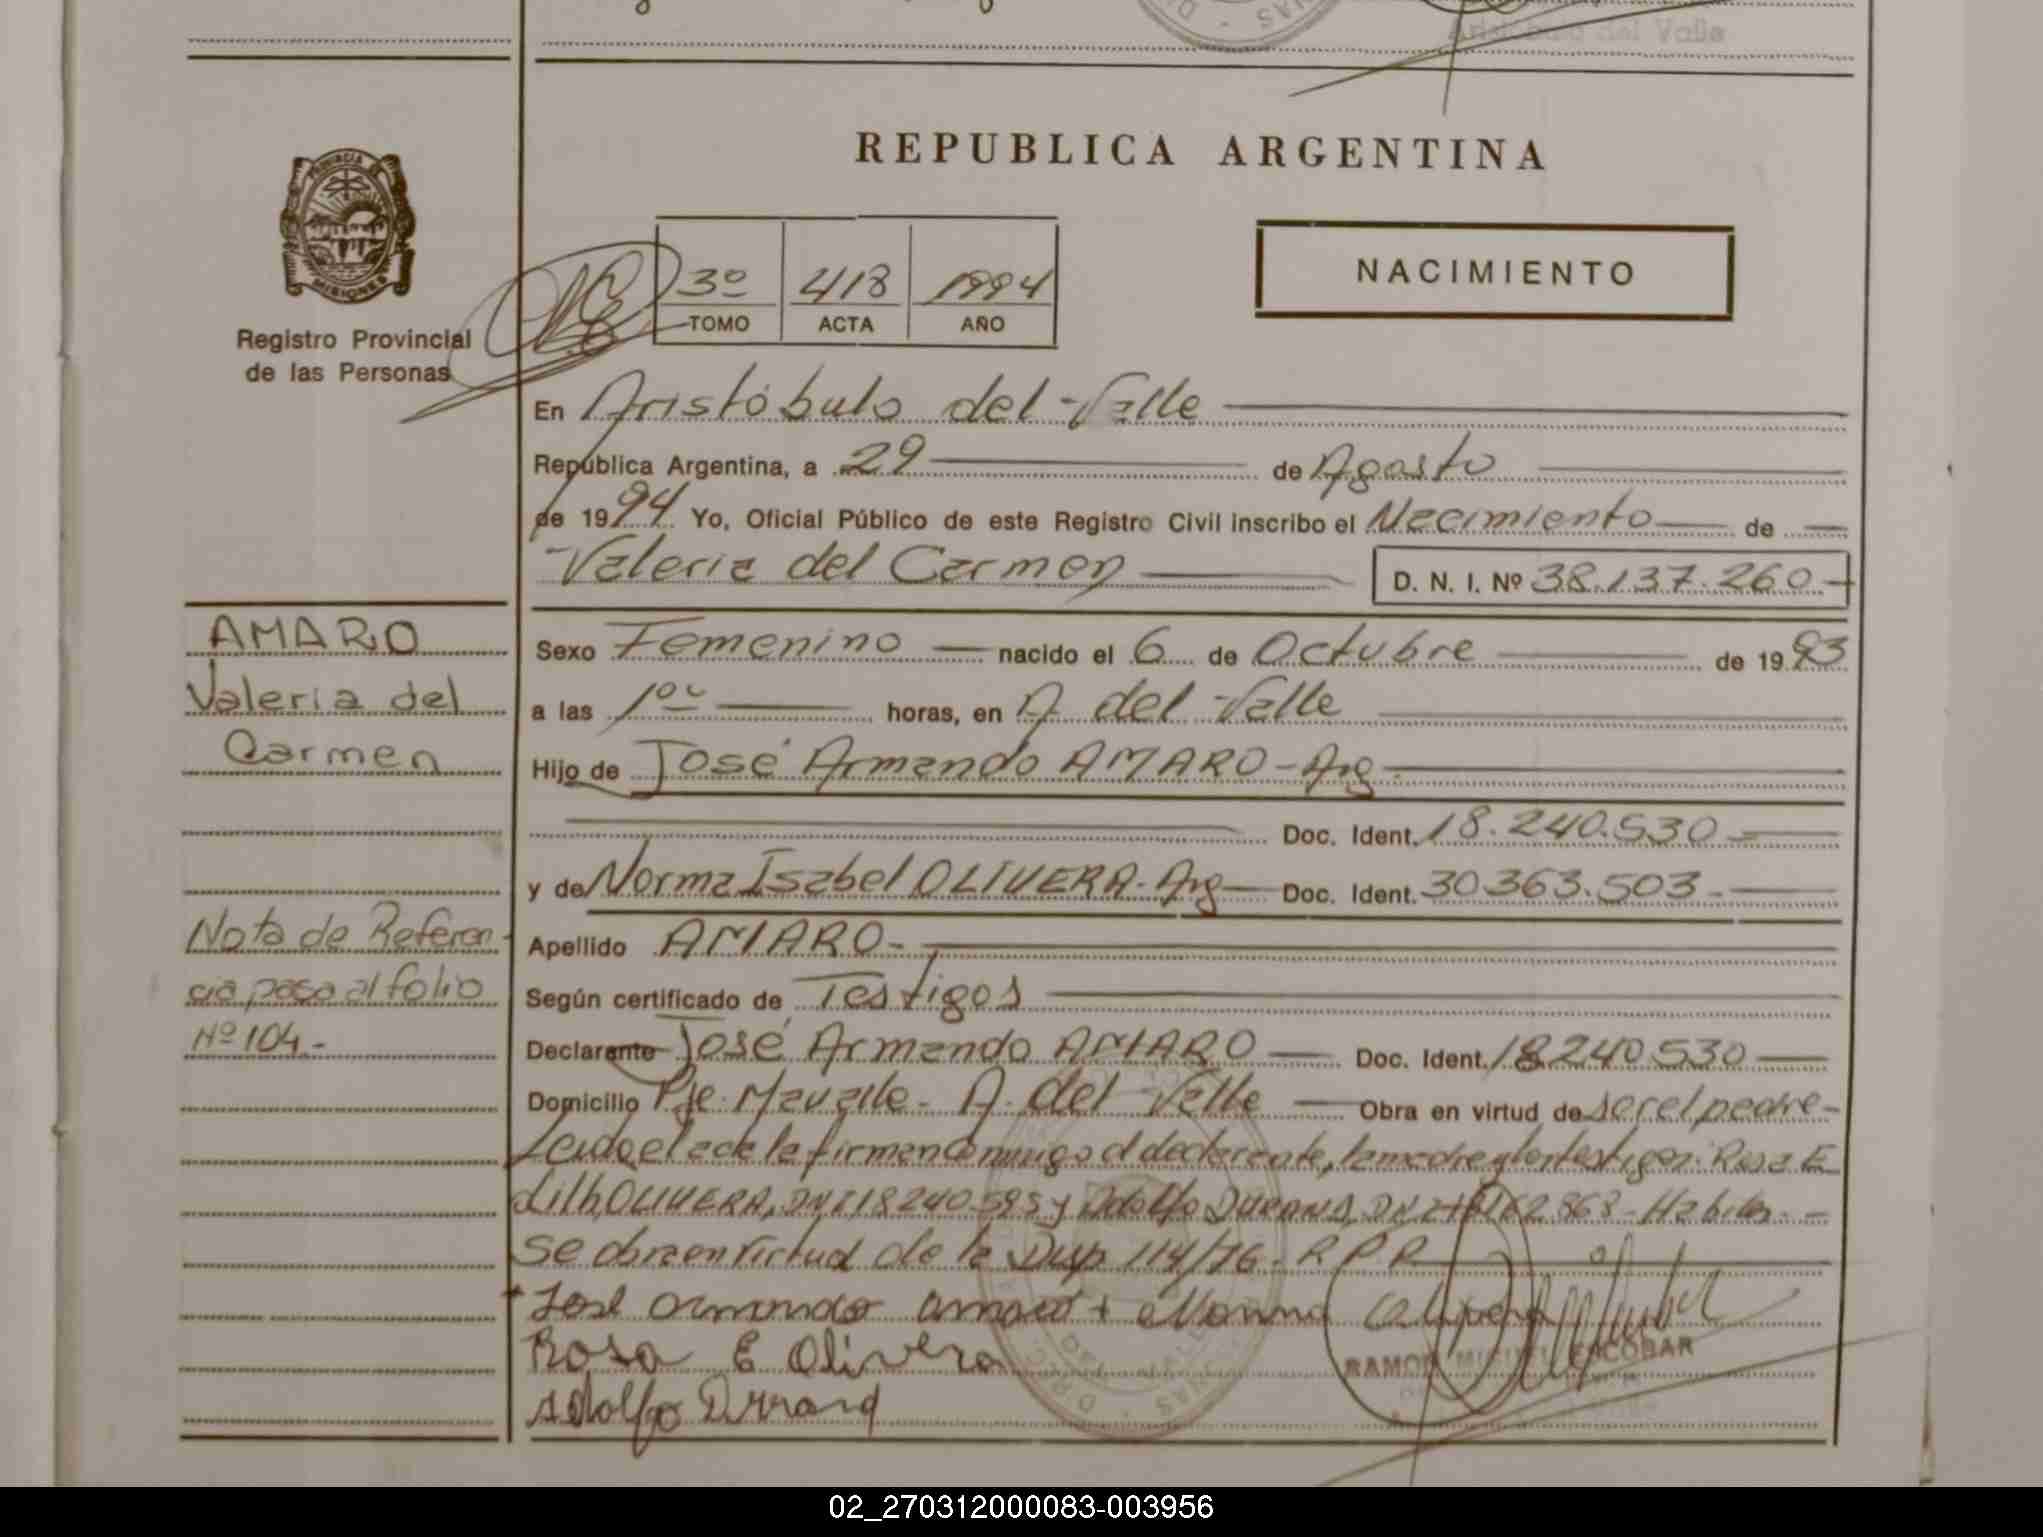 Aristóbulo del Valle
REPUBLICA ARGENTINA
PROVINCIA DE
MISIONES
Registro Provincial
de las Personas
3º 418 1994
TOMO ACTA AÑO
NACIMIENTO
En Aristóbulo del Valle
República Argentina, a 29 de Agosto
de 1994 Yo, Oficial Público de este Registro Civil inscribo el Nacimiento de
Valeria del Carmen D. N. I. Nº 38.137.260
AMARO
Valeria del
Carmen
Sexo Femenino nacido el 6 de Octubre de 1993
a las 1º horas, en A. del Valle
Hijo de José Armando AMARO - Arg.
Doc. Ident. 18.240.530
y de Norma Isabel OLIVERA - Arg Doc. Ident. 30.363.503
Nota de Referen-
cia pasa al folio
Nº 104.-
Apellido AMARO
Según certificado de Testigos
Declarante José Armando AMARO Doc. Ident. 18240530
Domicilio Pje. A. del Valle Obra en virtud de ser el padre-
Leido el acta la firman conmigo el declarante, la madre y los testigos: Rosa E
OLIVERA, DNI 18240595 y Adolfo DNI Habiles.-
Se obra en virtud de la Disp 114/76. R P P
+ José armando amaro + Norma Olivera
Rosa E Olivera
Adolfo
RAMON MIGUEL ESCOBAR
02_270312000083-003956